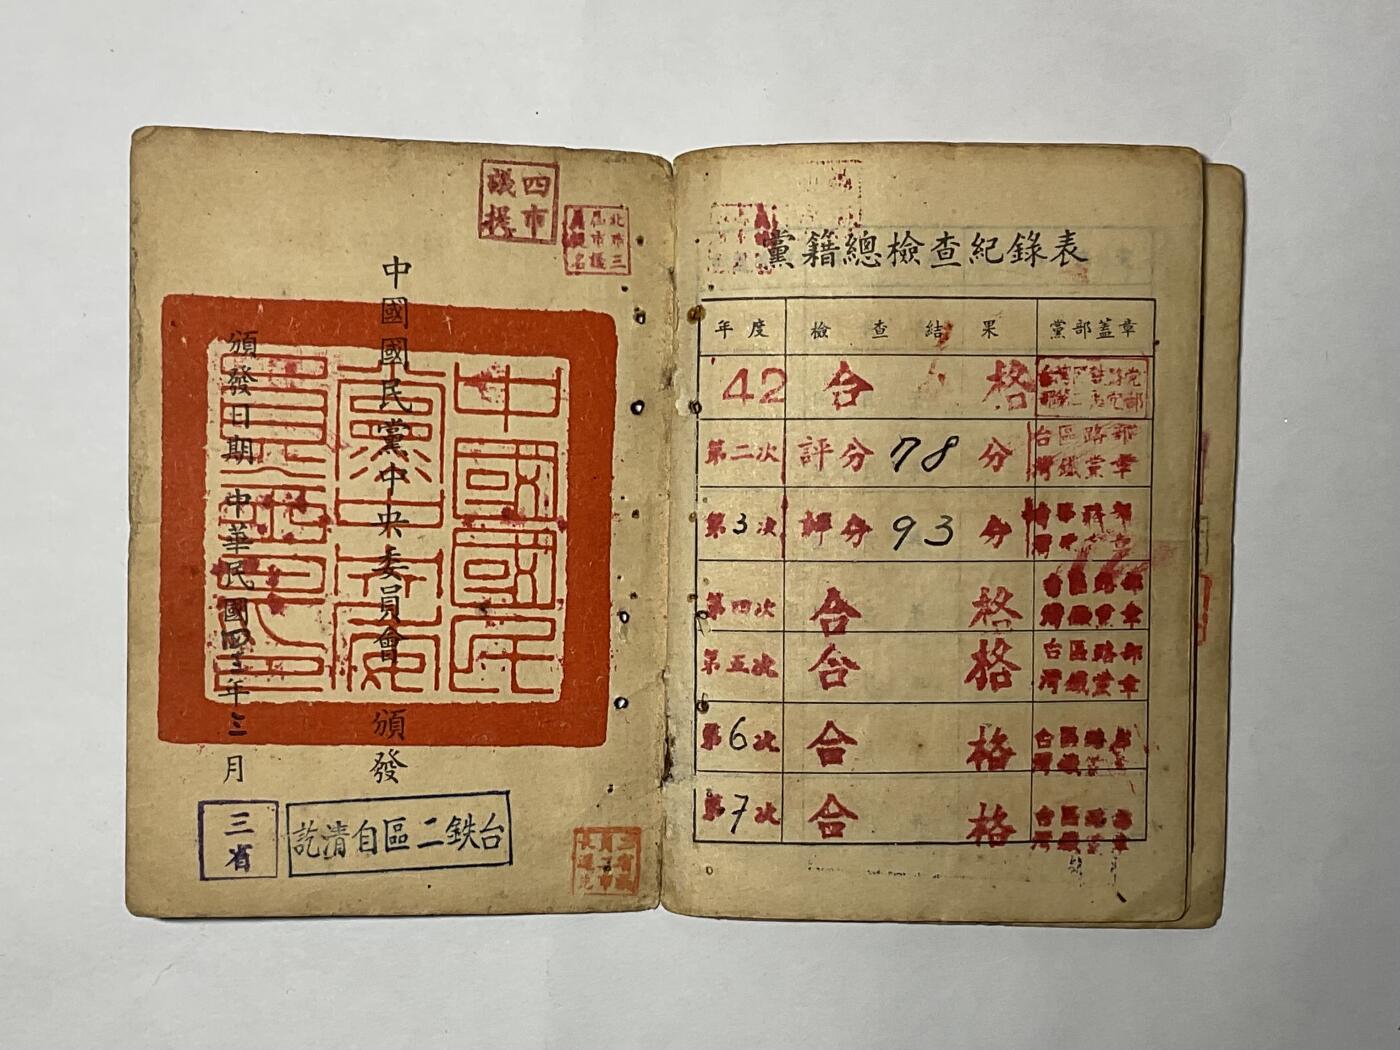 四市
議提
北市三
屆市議
員提名
中國國民黨中央委員會 頒發
頒發日期 中華民國四三年三月
中國國民
黨中央委
員會之印
三省
台鉄二區自清訖
黨籍總檢查紀錄表
年度 檢查結果 黨部蓋章
42 合格
第二次 評分78分 台區路部灣鐵黨章
第3次 評分93分
第四次 合格 台區路部灣鐵黨章
第五次 合格 台區路部灣鐵黨章
第6次 合格
第7次 合格 台區路部灣鐵黨章